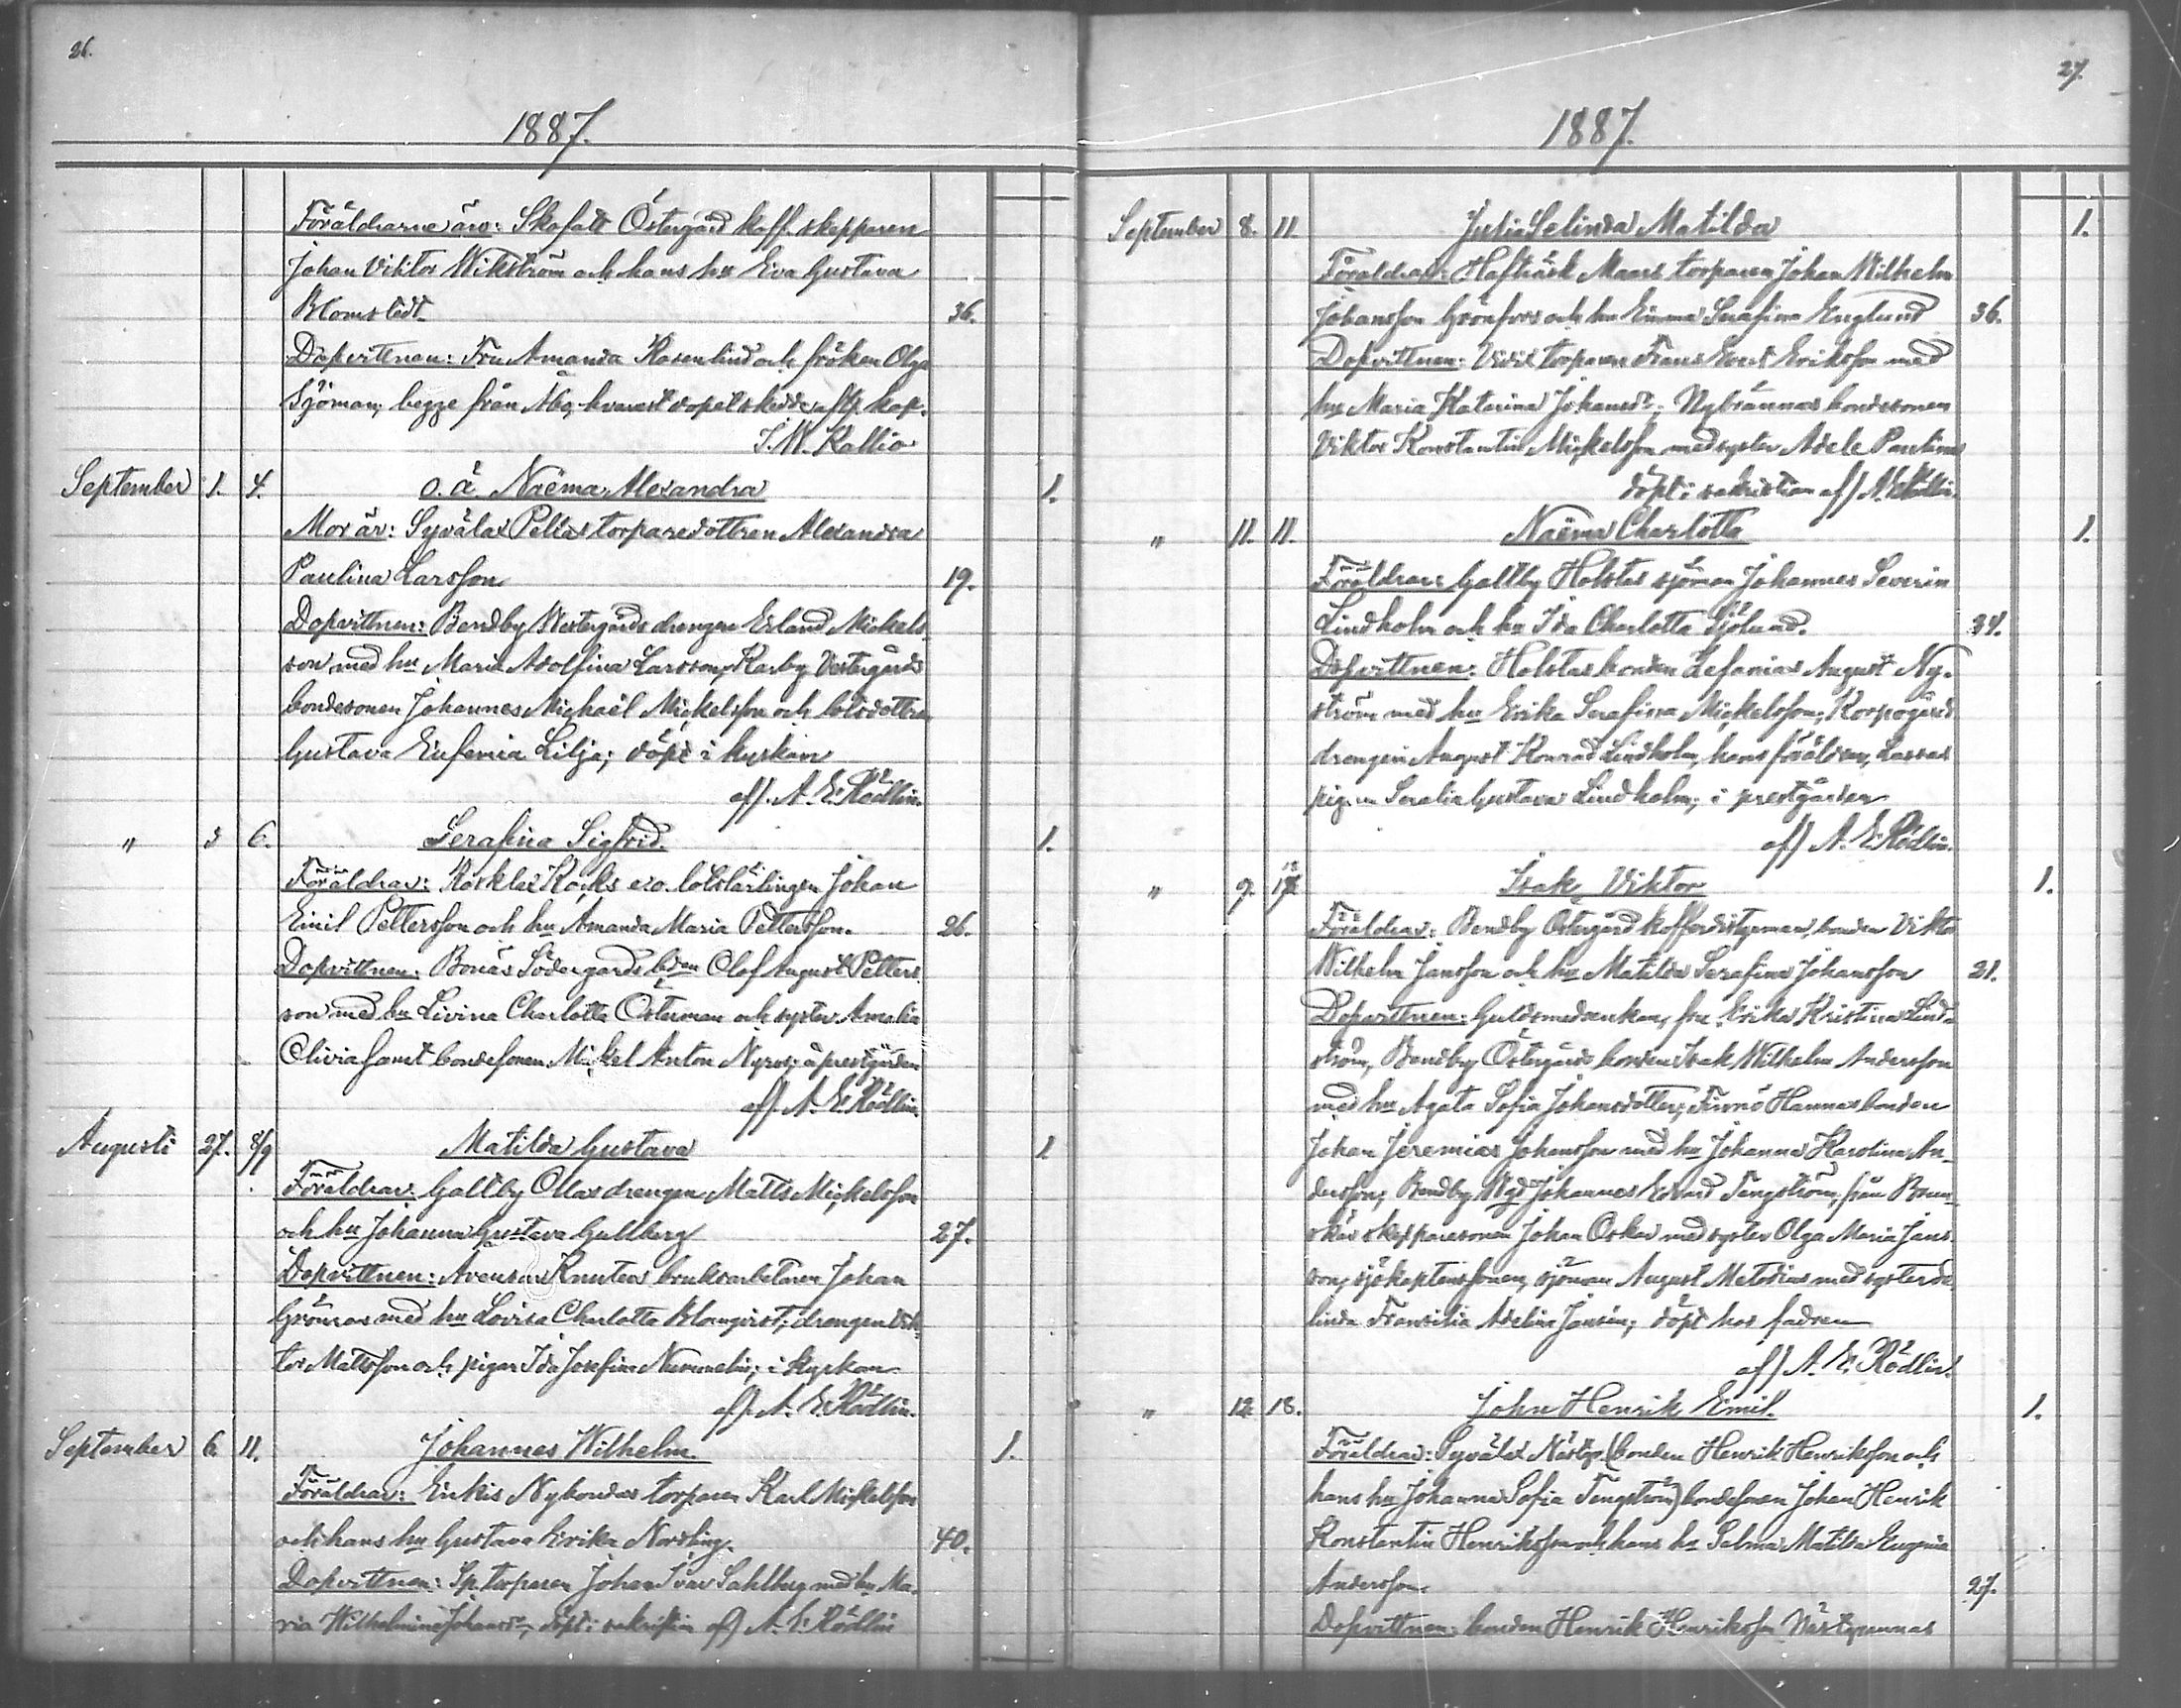 26.
1887.
Föräldrarne äro: Skafalt Östergård koff. skepparen
Johan Viktor Wikström och hans hu Eva Gustava
Blomstedt. 36.
Dopvittnen: Fru Amanda Rosenlind och fröken Olga
Sjöman, begge från Åbo, hvarest dopet skedde af kap.
J. W. Kallio
September 1. 4. o. ä. Naëma Alexandra 1.
Mor är: Syvälax Pellas torparedottren Alexandra
Paulina Larsson 19.
Dopvittnen: Bendby Westergårds drengen Erland Mickels-
son med hu Maria Adolfina Larsson, Karby Vestergårds
bondesonen Johannes Michaël Mickelsson och lotsdottren
Gustava Eufemia Lilja; döpt i kyrkan
af A. E. Rödlin.
" 3 6. Serafina Sigfrid. 1.
Föräldrar: Käcks e.o. lotslärlingen Johan
Emil Pettersson och hu Amanda Maria Pettersson. 26.
Dopvittnen: Bonäs Södergårds bden Olof August Petters-
son med hu Livina Charlotta Österman och syster Amalia
Olivia samt bondesonen Mickel Anton Nyroos; å prestgården
af A. E. Rödlin.
Augusti 27. 8/9 Matilda Gustava 1.
Föräldrar: Galtby Ollas drengen Matts Mickelsson
och hu Johanna Gustava Gullberg 27.
Dopvittnen: Avensor Knuters bruksarbetaren Johan
Grönroos med hu Lovisa Charlotta Blomqvist; drengen Vik-
tor Mattsson och pigan Ida Josefina Nummelin; i kyrkan
af A. E. Rödlin.
September 6. 11. Johannes Wilhelm. 1.
Föräldrar: Enkis Nybondas torparen Karl Mickelsson
och hans hu Gustava Erika Nordling. 40.
Dopvittnen: Sp. torparen Johan Ivar Sahlberg med hu Ma-
ria Wilhelmina Johansdr, döpt i sakristian af A. E. Rödlin
27.
1887.
September 8. 11. Julia Selinda Matilda 1.
Föräldrar: Hafträsk Maars torparen Johan Wilhelm
Johansson Grönfors och hu Emma Serafina Englund 36.
Dopvittnen: torparen Frans Evert Eriksson med
hu Maria Katarina Johansdr; Nybrännas bondesonen
Viktor Konstantin Mickelsson med syster Adele Paulina
döpt i sakristian af A. E. Rödlin.
" 11. 11. Naëma Charlotta 1.
Föräldrar: Galtby Holstas sjöman Johannes Severin
Lindholm och hu Ida Charlotta Sjölund. 34.
Dopvittnen: Holstas bonden Zefanias August Ny-
ström med hu Erika Serafina Mickelsson; Korpogård
drengen August Konrad Lindholm, hans föräldrar, Lassas
pigan Seralia Gustava Lindholm; i prestgården
af A. E. Rödlin.
" 9. 18 Isak Viktor 1.
Föräldrar: Bendby Östergård kofferdisjöman, bonden Viktor
Wilhelm Jansson och hu Matilda Serafina Johansson 21.
Dopvittnen: Guldsmedsenkan, fru Erika Kristina Lind-
ström, Bendby Östergårds bonden Isak Wilhelm Andersson
med hu Agata Sofia Johansdotter; Finnö Hannas bonden
Johan Jeremias Johansson med hu Johanna Karolina An-
dersson; Bendby Wgd Johannes Edvard Tengström, från Brun-
skär skepparesonen Johan Oskar med syster Olga Maria Jans-
son; sjökaptenssonen, sjöman August Metodius med syster 
linda Fransilia Adelina Jansén; döpt hos fadren
af A. E. Rödlin.
" 12. 18. John Henrik Emil. 1.
Föräldrar: Syvälax (bonden Henrik Henriksson och
hans hu Johanna Sofia Tengström) bondesonen Johan Henrik
Konstantin Henriksson och hans hu Selma Matilda Eugenia
Andersson. 27.
Dopvittnen: bonden Henrik Henriksson